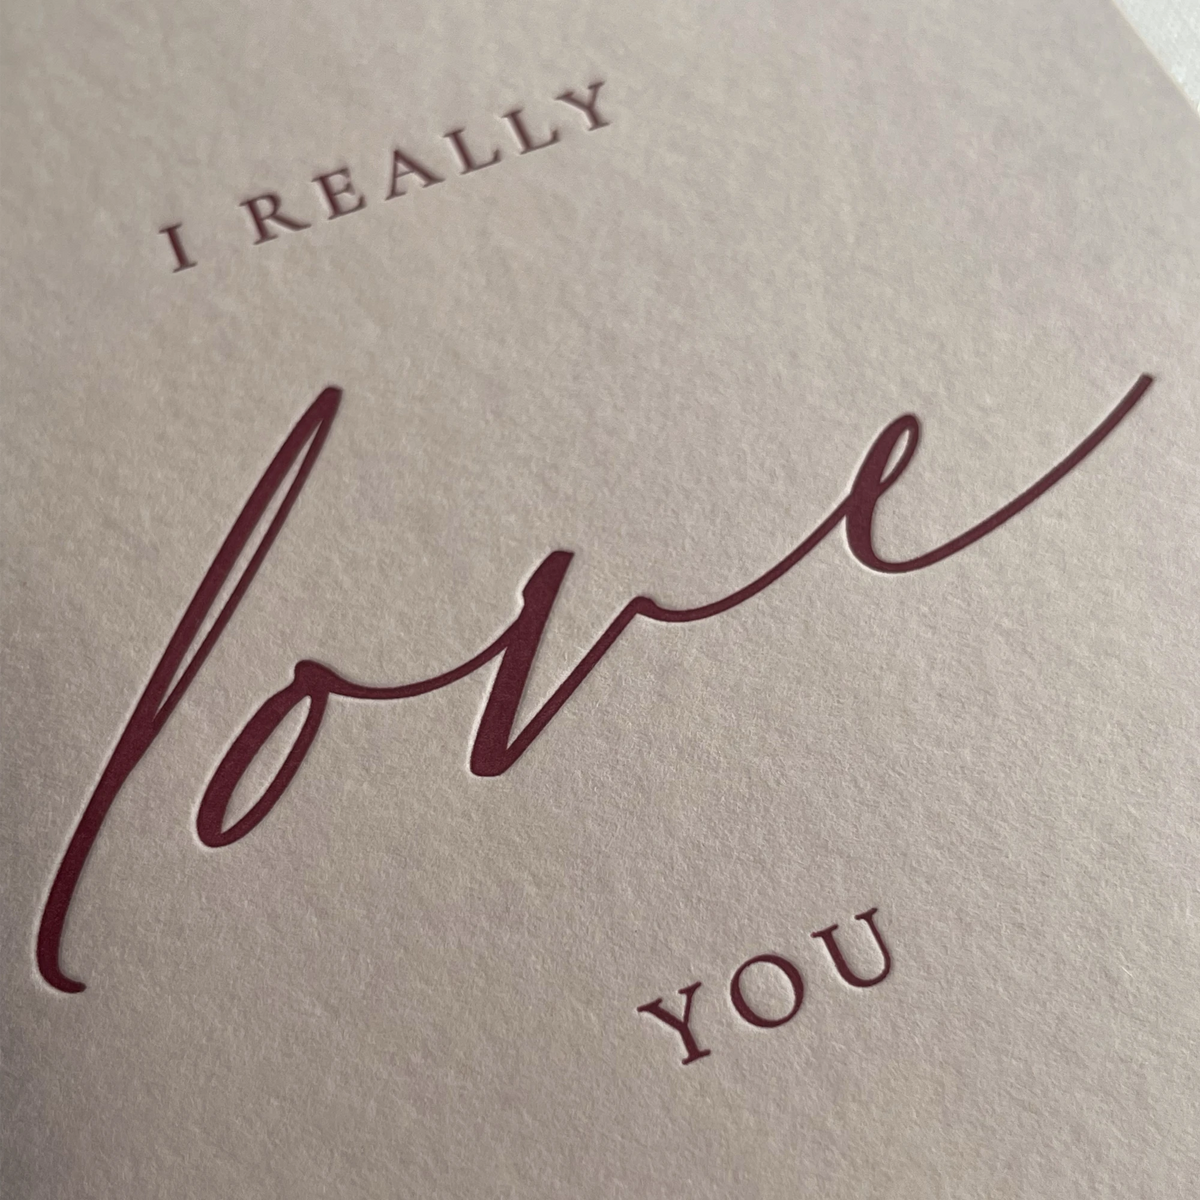 I REALLY
love
YOU